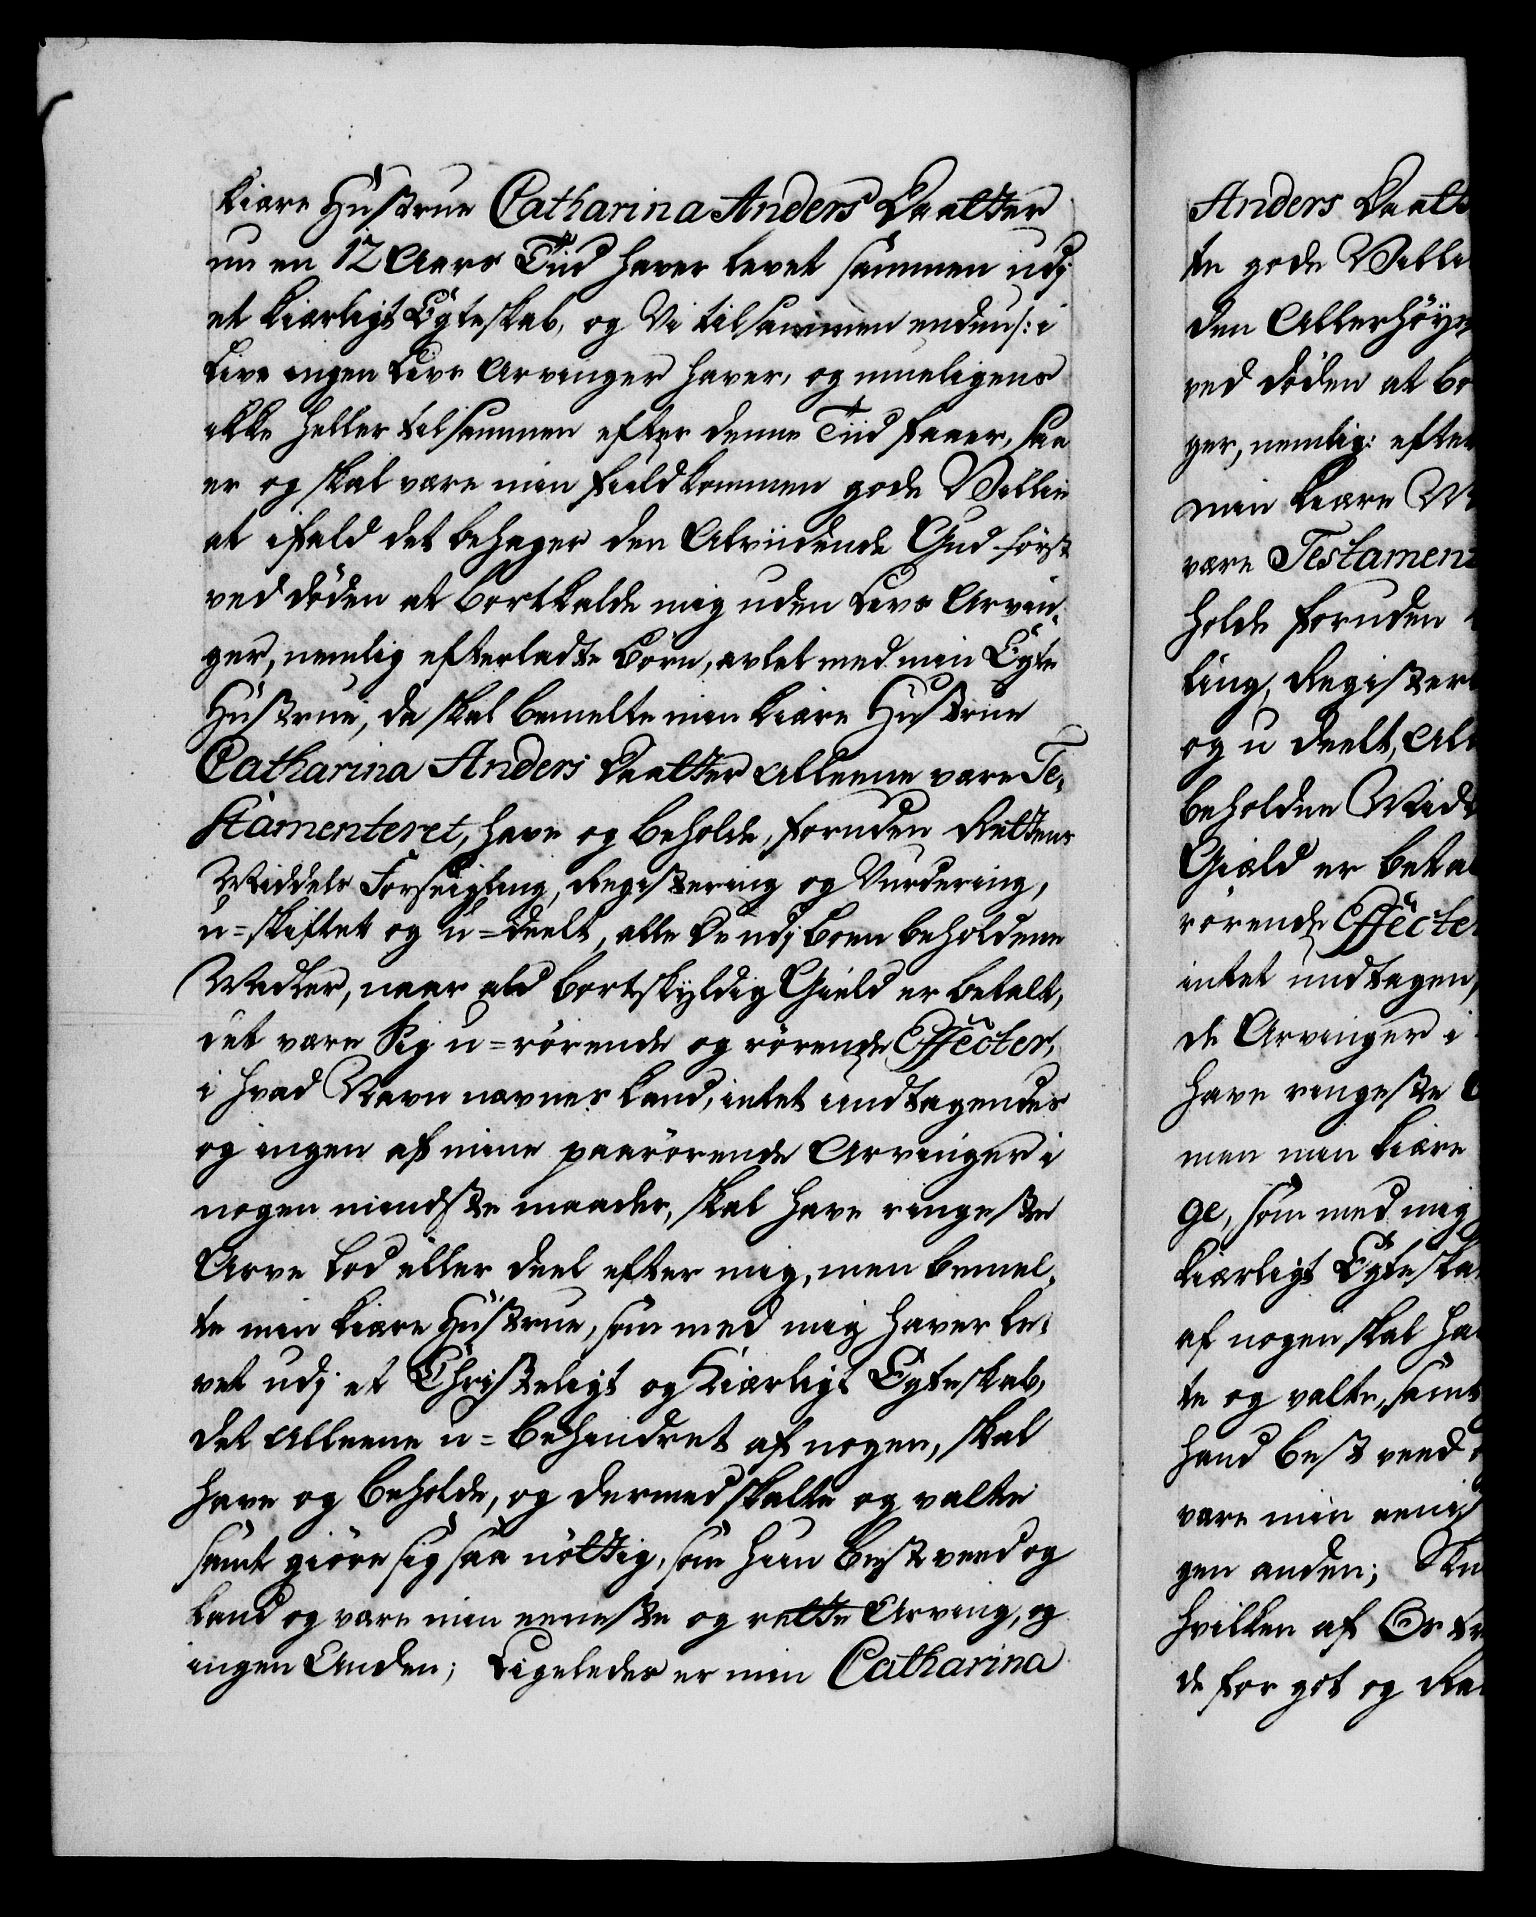 kiære Hustrue Catharina Anders Daatter
nu en 12 Aars Tiid haver levet sammen udj
et kiærligt Egteskab, og Vi tilsammen endnu i
Live ingen Livs Arvinger haver, og mueligens
ikke heller tilsammen efter denne Tiid faaer, saa
er og skal være min fuldkommen gode Villie
at ifald det behager den Alviidende Gud først
ved døden at bortkalde mig uden Livs Arvin-
ger, nemlig efterladte Børn, avlet med min Egte
Hustrue, da skal bemelte min kiære Hustrue
Catharina Anders Daatter alleene være Te-
stamenteret, have og beholde, foruden Rettens
Middels Forseigling, Registering og Vurdering,
u=skiftet og u=deelt, alle de udj Boen beholdene
Midler, naar ald bortskyldig Gield er betalt,
det være sig u=rørende og rørende Effecter,
i hvad Navn nævnes kand, intet undtagendes
og ingen af mine paarørende Arvinger i
nogen mindste maader, skal have ringeste
Arve Lod eller deel efter mig, men bemel-
te min kiære Hustrue, som med mig haver le-
vet udj et Christeligt og Kiærligt Egteskab,
det alleene u=behindret af nogen, skal
have og beholde, og dermed skalte og valte
samt giøre sig saa nøttig, som hun best veed og
kand og være min eeneste og rette Arving, og
ingen Anden; Ligeledes er min Catharina
Anders Daatt
te gode Villi
den Allerhøy
ved døden at bo
ger, nemlig: efter
min kiære M
være Testament
holde foruden
ling, Register
og u deelt, al
beholden Midl
Gield er betal
rørende Effecter
intet undtagen,
de Arvinger i
have ringeste
men min kiære
ge, som med mig
kiærligt Egteska
af nogen skal ha
te og valte, samt
hand best veed
være min eenes
gen anden;
hvilken af Os
de for got og